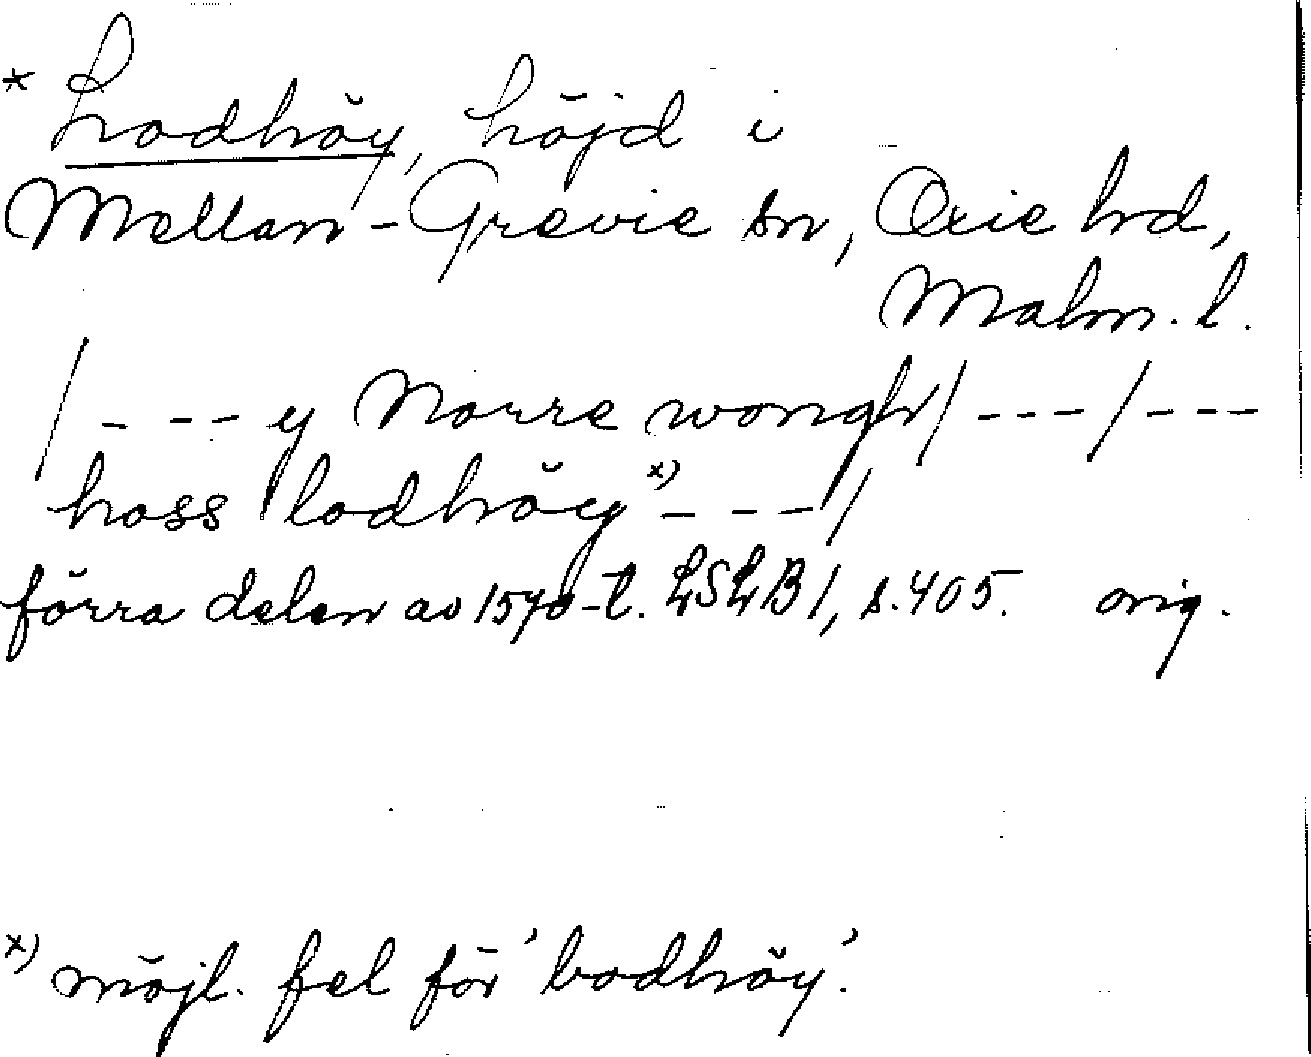 * Lodhöy, höjd i
Mellan-Grevie sn, Oxie hd,
Malm. l.
/---y Norre wongh/---/---
hoss lodhöy x) ---/
förra delen av 1570-t. LSLB 1, s. 405. orig.
x) möjl. fel för 'bodhöy'.